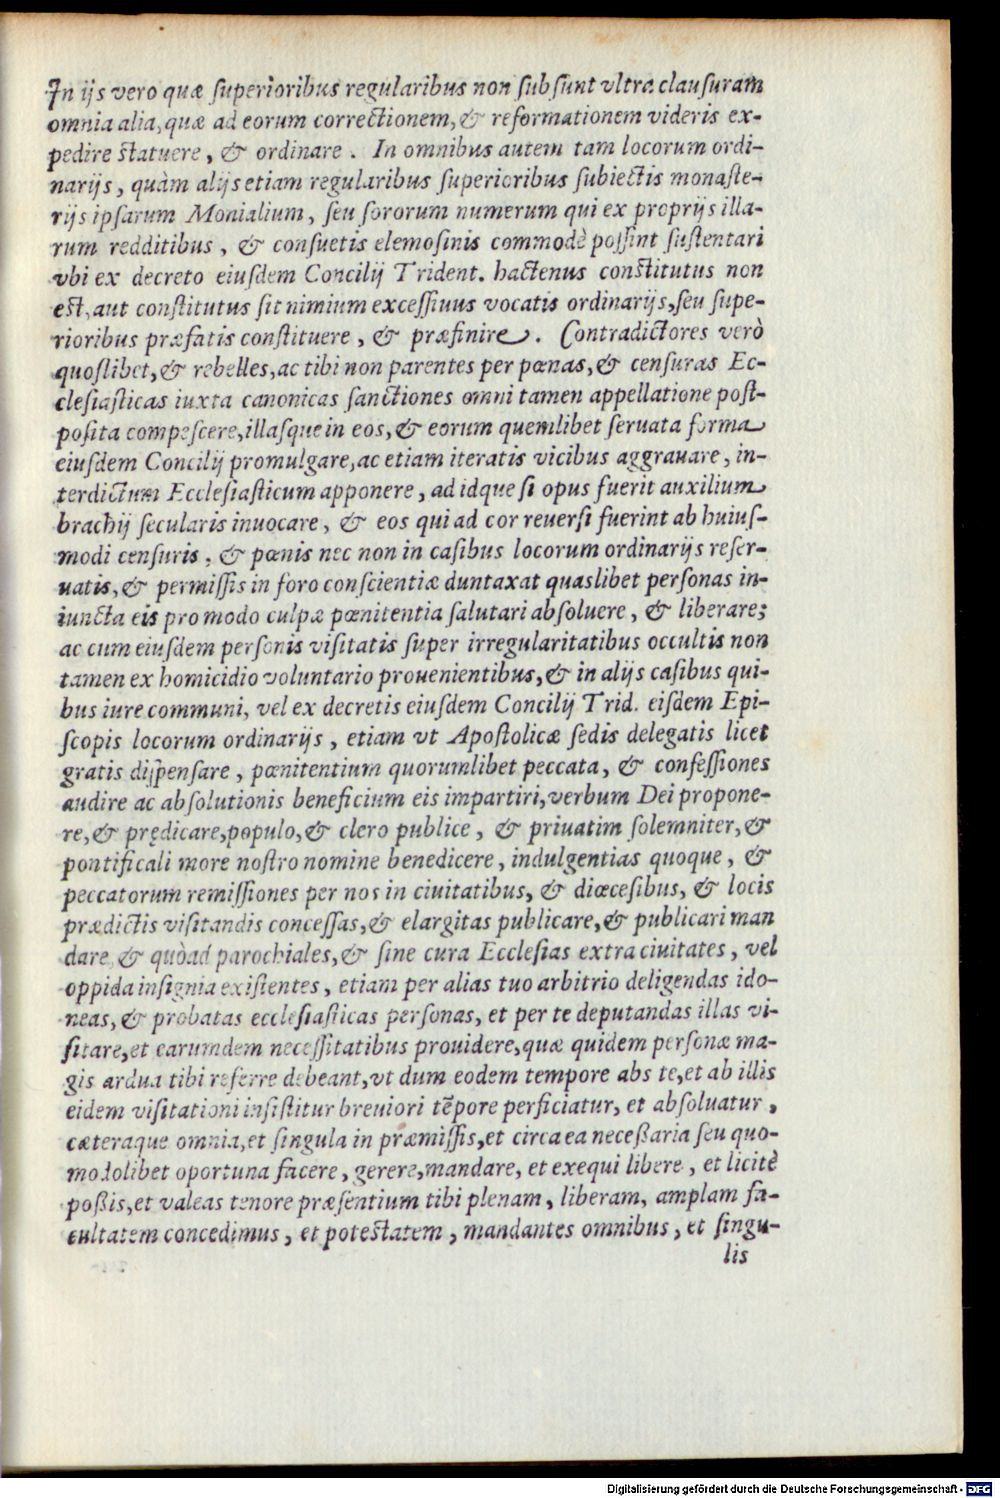 In ijs vero quæ ſuperioribus regularibus non ſubſunt vltra clauſuram
omnia alia, quæ ad eorum correctionem, & reformationem videris ex-
pedire ſtatuere, & ordinare. In omnibus autem tam locorum ordi-
narijs, quàm alijs etiam regularibus ſuperioribus ſubiectis monaſte-
rijs ipſarum Monialium, ſeu ſororum numerum qui ex proprijs illa-
rum redditibus, & conſuetis elemoſinis commodè poſſint ſuſtentari
vbi ex decreto eiuſdem Concilij Trident. hactenus conſtitutus non
eſt, aut conſtitutus ſit nimium exceſſiuus vocatis ordinarijs, ſeu ſupe-
rioribus præfatis conſtituere, & præfinire. Contradictores verò
quoſlibet, & rebelles, ac tibi non parentes per pœnas, & cenſuras Ec-
cleſiaſticas iuxta canonicas ſanctiones omni tamen appellatione poſt-
poſita compeſcere, illaſque in eos, & eorum quemlibet ſeruata forma
eiuſdem Concilij promulgare, ac etiam iteratis vicibus aggrauare, in-
terdictum Eccleſiaſticum apponere, ad idque ſi opus fuerit auxilium
brachij ſecularis inuocare, & eos qui ad cor reuerſi fuerint ab huiuſ-
modi cenſuris, & pœnis nec non in caſibus locorum ordinarijs reſer-
uatis, & permiſſis in foro conſcientiæ duntaxat quaslibet perſonas in-
iuncta eis pro modo culpæ pœnitentia ſalutari abſoluere, & liberare;
ac cum eiuſdem perſonis viſitatis ſuper irregularitatibus occultis non
tamen ex homicidio voluntario prouenientibus, & in alijs caſibus qui-
bus iure communi, vel ex decretis eiuſdem Concilij Trid. eiſdem Epi-
ſcopis locorum ordinarijs, etiam vt Apoſtolicæ ſedis delegatis licet
gratis diſpenſare, pœnitentium quorumlibet peccata, & confeſſiones
audire ac abſolutionis beneficium eis impartiri, verbum Dei propone-
re, & prędicare, populo, & clero publice, & priuatim ſolemniter, &
pontificali more noſtro nomine benedicere, indulgentias quoque, &
peccatorum remiſſiones per nos in ciuitatibus, & diœceſibus, & locis
prædictis viſitandis conceſſas, & elargitas publicare, & publicari man
dare, & quòad parochiales, & ſine cura Eccleſias extra ciuitates, vel
oppida inſignia exiſtentes, etiam per alias tuo arbitrio deligendas ido-
neas, & probatas eccleſiaſticas perſonas, et per te deputandas illas vi-
ſitare, et earumdem neceſſitatibus prouidere, quæ quidem perſonæ ma-
gis ardua tibi referre debeant, vt dum eodem tempore abs te, et ab illis
eidem viſitationi inſiſtitur breuiori tẽpore perficiatur, et abſoluatur,
cæteraque omnia, et ſingula in præmiſſis, et circa ea neceßaria ſeu quo-
modolibet oportuna facere, gerere, mandare, et exequi libere, et licitè
poßis, et valeas tenore præſentium tibi plenam, liberam, amplam fa-
cultatem concedimus, et poteſtatem, mandantes omnibus, et ſingu-
lis
Digitalisierung gefördert durch die Deutsche Forschungsgemeinschaft - DFG